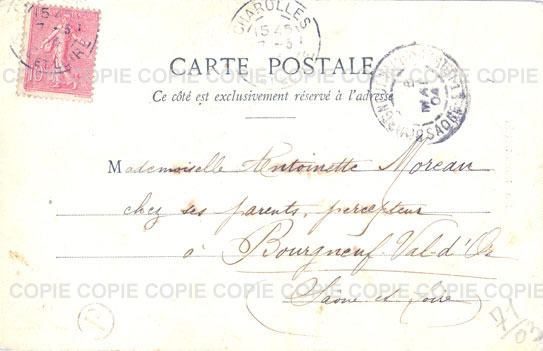 CHAROLLES
15 45
7 -5
CARTE POSTALE
Ce côté est exclusivement réservé à l'adresse
Mademoiselle Antoinette Moreau
chez ses parents, percepteur
à Bourgneuf-Val-d'Or
Saône et Loire
71/03
COPIE COPIE COPIE COPIE COPIE COPIE COPIE
COPIE COPIE COPIE COPIE COPIE COPIE COPIE
COPIE COPIE COPIE COPIE COPIE COPIE COPIE
COPIE COPIE COPIE COPIE COPIE COPIE COPIE